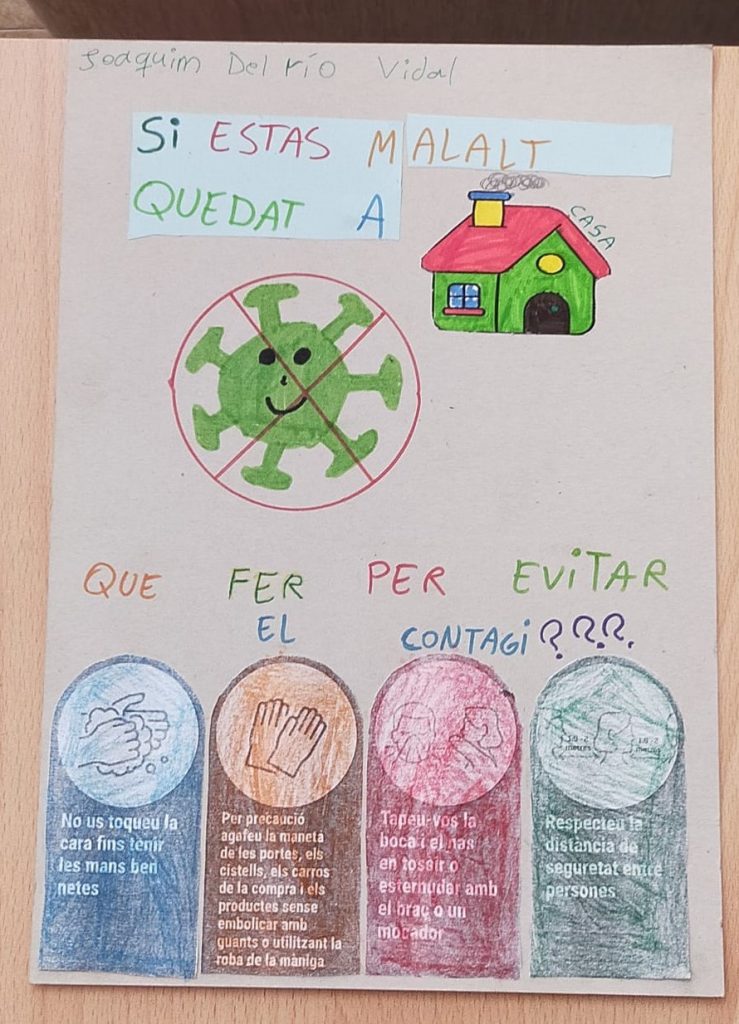 Joaquim Del río Vidal
Si ESTAS MALALT
QUEDAT A
CASA
QUE FER PER EViTAR
EL CONTAGi ???.
No us toqueu la
cara fins tenir
les mans ben
netes
Per precaució
agafeu la maneta
de les portes, els
cistells, els carros
de la compra i els
productes sense
embolicar amb
guants o utilitzant la
roba de la màniga
Tapeu-vos la
boca i el nas
en tossir o
esternudar amb
el braç o un
mocador
1,5-2
metres
1,5-2
metres
Respecteu la
distància de
seguretat entre
persones